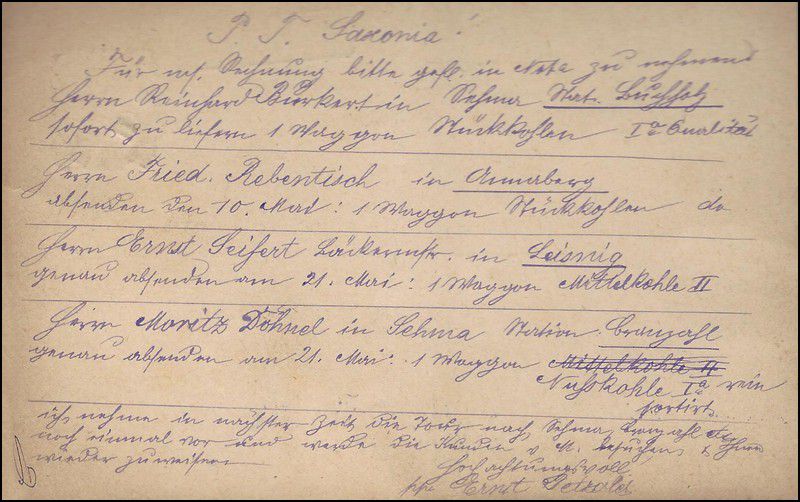 P. T. Saxonia!
Für m/. Rechnung bitte gefl. in Nota zu nehmen
Herrn Reinhard Burkert in Sehma Stat. Buchholz
sofort zu liefern 1 Waggon Stückkohlen Ia Qualität
Herrn Fried. Rebentisch in Annaberg
absenden den 10. Mai: 1 Waggon Stückkohlen do
Herrn Ernst Seifert Bäckermstr. in Leisnig
genau absenden am 21. Mai: 1 Waggon Mittelkohle II
Herrn Moritz Döhnel in Sehma Station Cranzahl
genau absenden am 21. Mai: 1 Waggon Mittelkohle II
Nußkohle Ia rein
sortirt.
ich nehme in nächster Zeit die Tour nach Sehma, Cranzahl
noch einmal vor und werde die Kunden d. M. besuchen & Ihnen
wieder zuweisen
Hochachtungsvoll
ppa Ernst Petzold